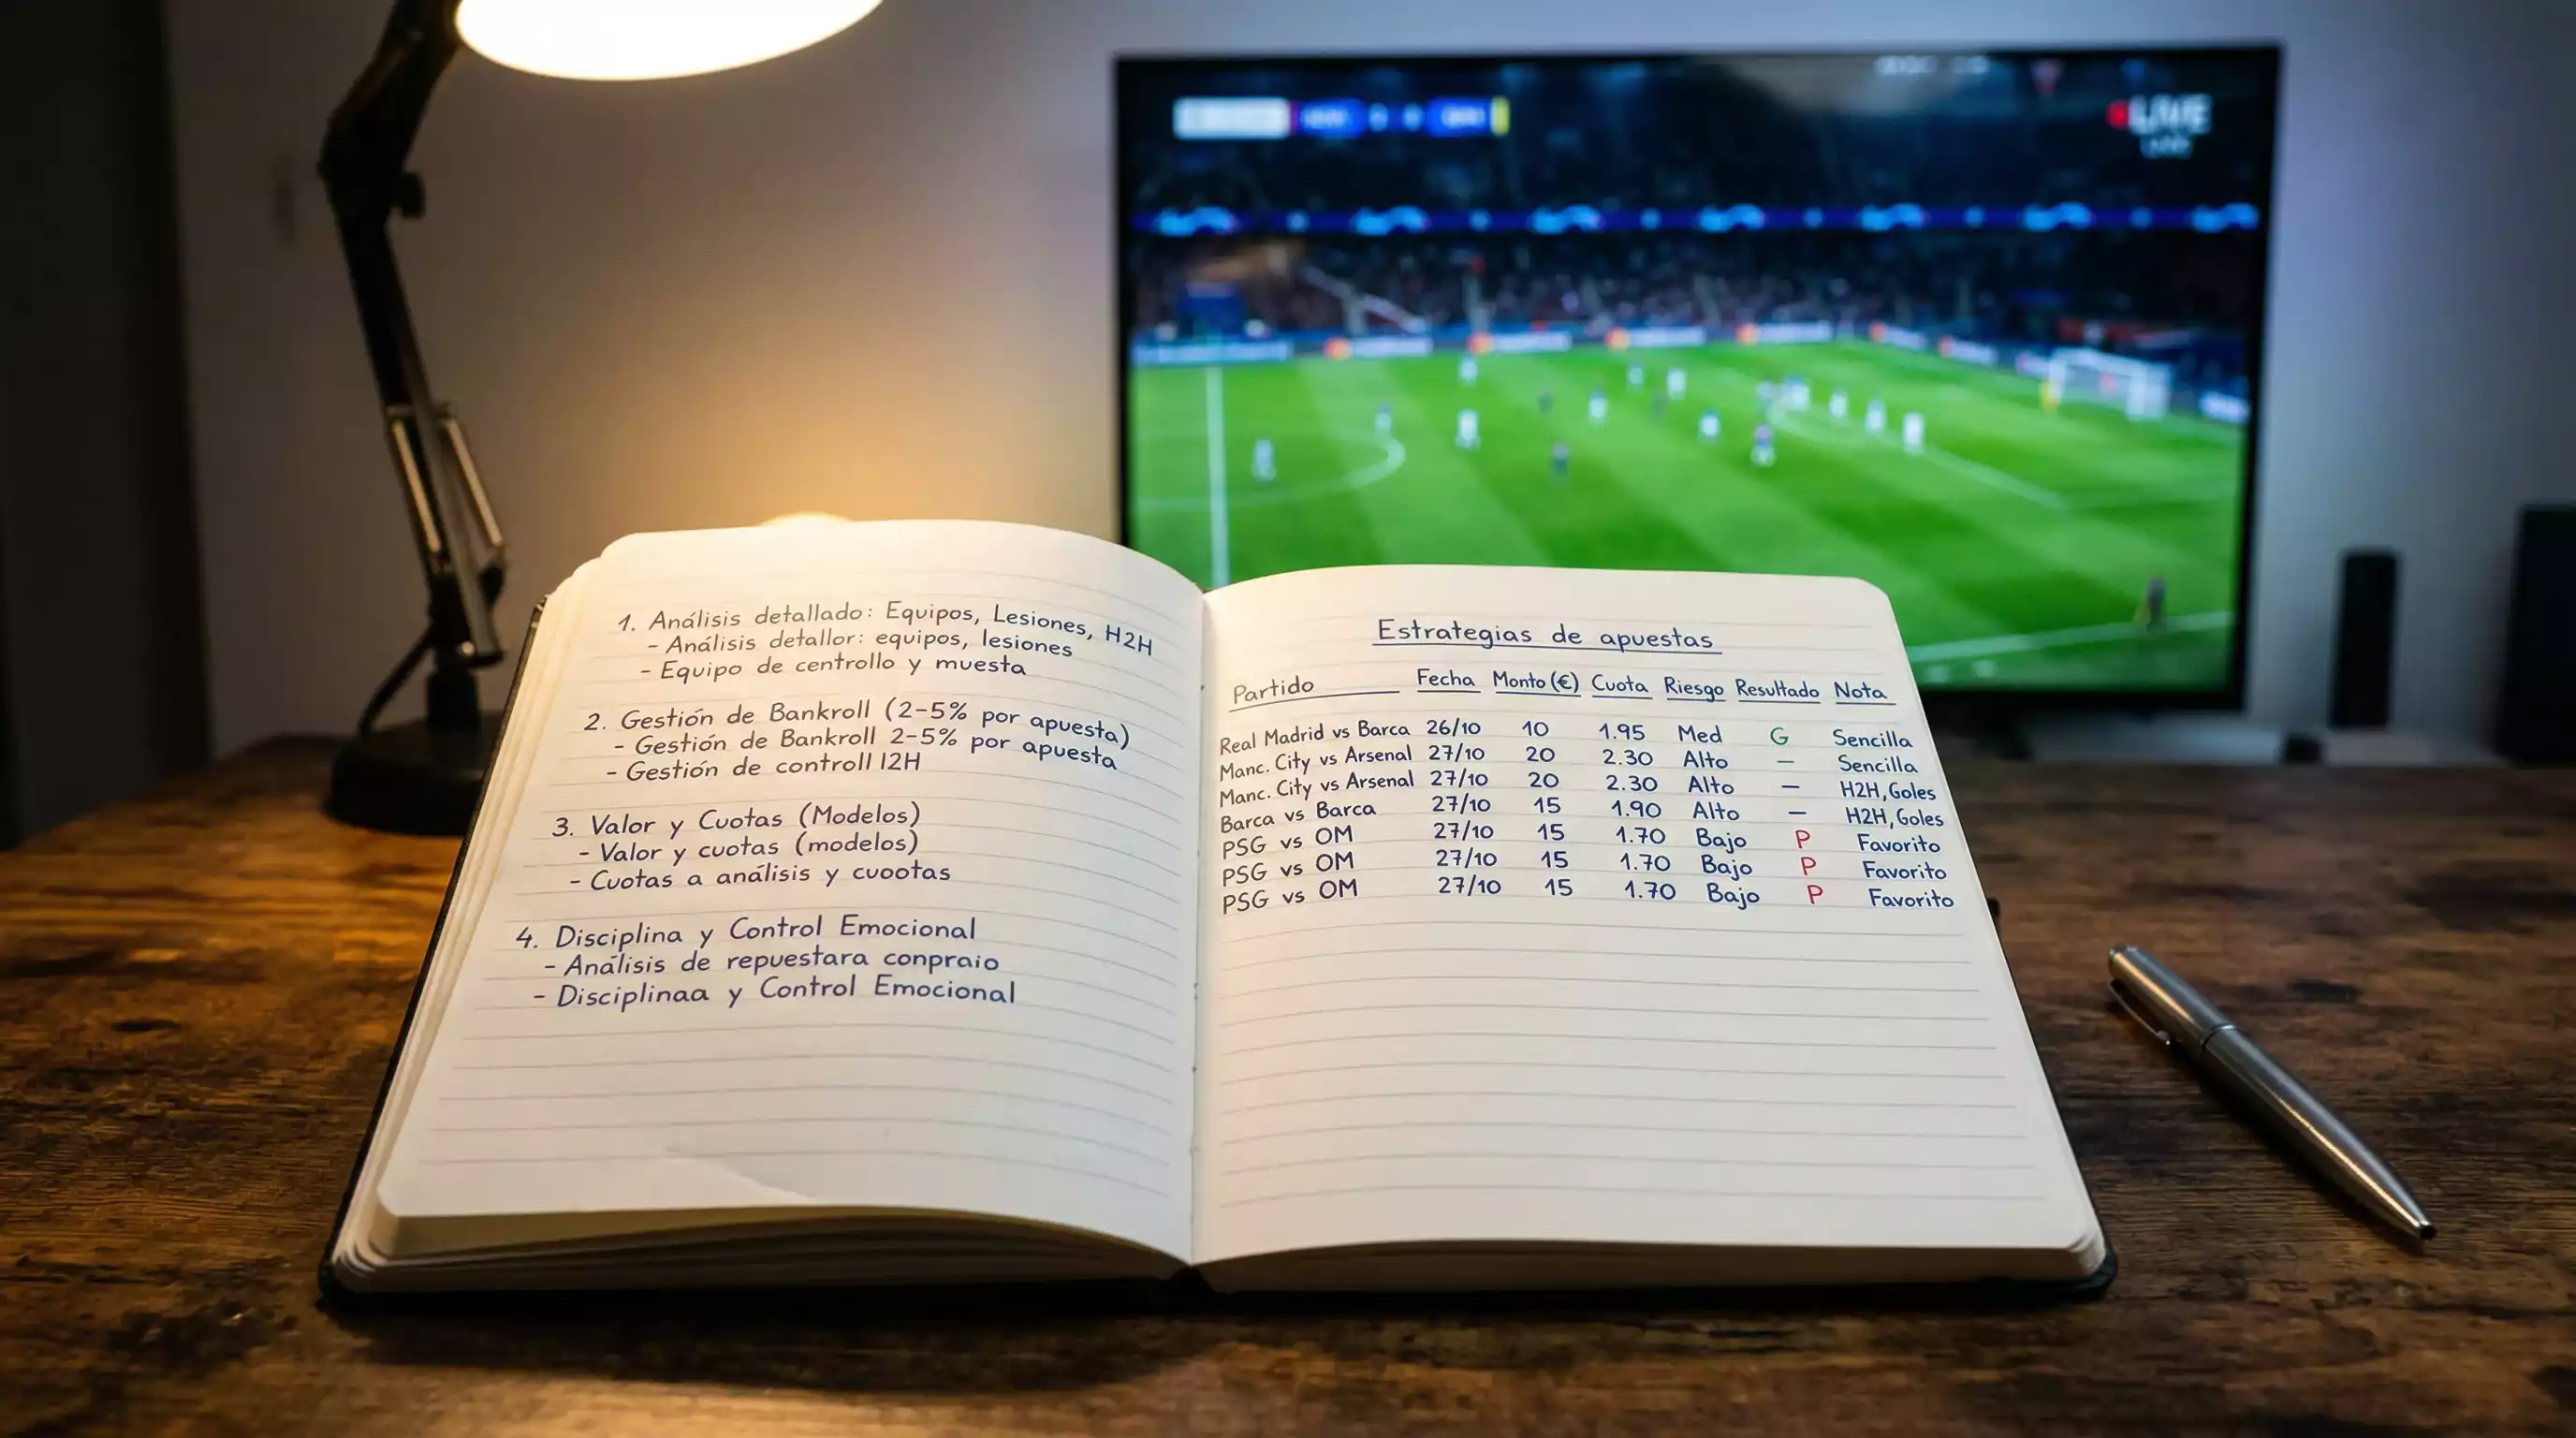 LIVE
1. Análisis detallado: Equipos, Lesiones, H2H
- Análisis detallor: equipos, lesiones
- Equipo de centrollo y muesta
2. Gestión de Bankroll (2-5% por apuesta)
- Gestión de Bankroll 2-5% por apuesta
- Gestión de controll I2H
3. Valor y Cuotas (Modelos)
- Valor y cuotas (modelos)
- Cuotas a análisis y cuootas
4. Disciplina y Control Emocional
- Análisis de repuestara conpraio
- Disciplinaa y Control Emocional
Estrategias de apuestas
Partido Fecha Monto (€) Cuota Riesgo Resultado Nota
Real Madrid vs Barca 26/10 10 1.95 Med G Sencilla
Manc. City vs Arsenal 27/10 20 2.30 Alto – Sencilla
Manc. City vs Arsenal 27/10 20 2.30 Alto – H2H, Goles
Barca vs Barca 27/10 15 1.90 Alto – H2H, Goles
PSG vs OM 27/10 15 1.70 Bajo P Favorito
PSG vs OM 27/10 15 1.70 Bajo P Favorito
PSG vs OM 27/10 15 1.70 Bajo P Favorito